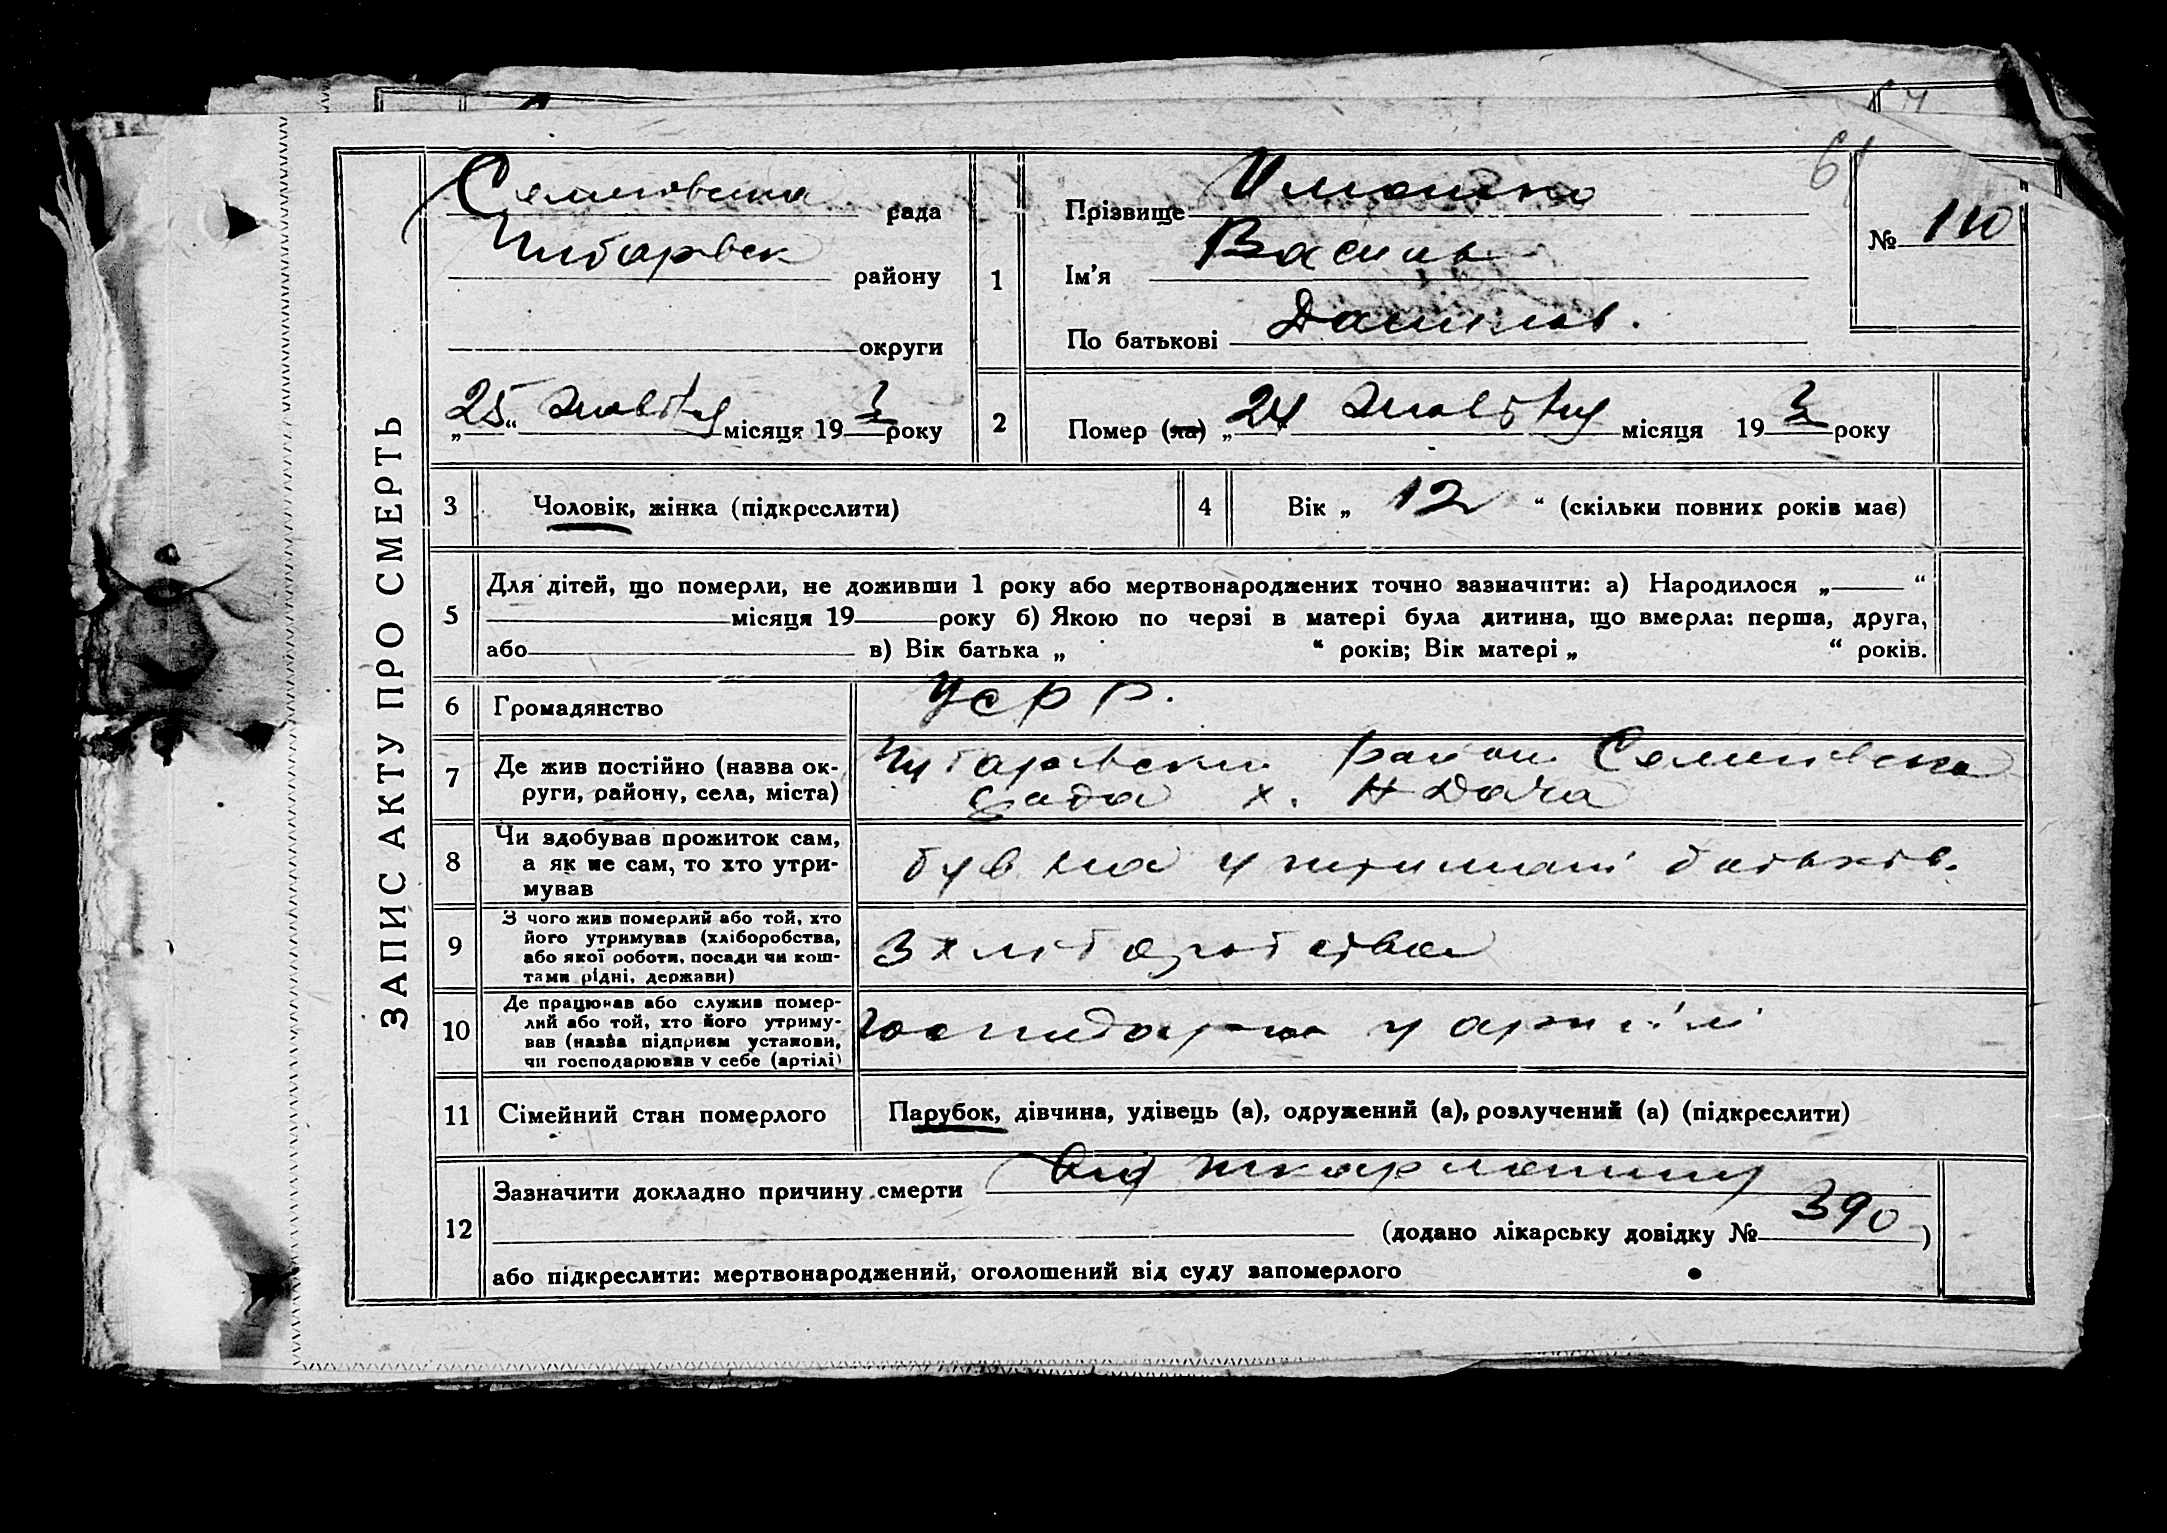 61
ЗАПИС АКТУ ПРО СМЕРТЬ
Семеновська рада
Чубаровск району
округи
„25“ жовтну місяця 193 року
1
Прізвище
Ім'я Василь
По батькові Данилов.
№ 110
2
Помер (ла) „24 жовтну місяця 193 року
3 Чоловік, жінка (підкреслити)
4 Вік „ 12 “ (скільки повних років має)
5
Для дітей, що померли, не доживши 1 року або мертвонароджених точно зазначити: а) Народилося „ “
місяця 19 року б) Якою по черзі в матері була дитина, що вмерла: перша, друга,
або в) Вік батька „ “ років; Вік матері „ “ років.
6 Громадянство УСРР.
7 Де жив постійно (назва округи, району, села, міста)
Чубаровски район Семенівска
рада х. Н Дача
8 Чи здобував прожиток сам, а як не сам, то хто утримував
був на утримані батьків.
9 З чого жив померлий або той, хто його утримував (хліборобства, або якої роботи, посади чи коштами рідні, держави)
З хліборобства
10 Де працював або служив померлий або той, хто його утримував (назва підприєм установи, чи господарював у себе (артілі)
у артілі
11 Сімейний стан померлого
Парубок, дівчина, удівець (а), одружений (а), розлучений (а) (підкреслити)
12
Зазначити докладно причину смерти від шкарлатини
(додано лікарську довідку № 390)
або підкреслити: мертвонароджений, оголошений від суду запомерлого